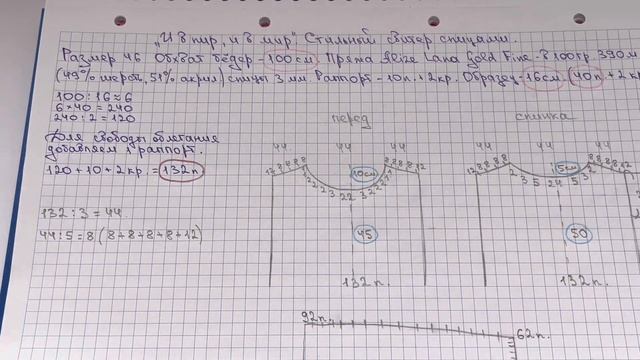 „И в пир, и в мир". Стильный свитер спицами.
Размер 46 Обхват бёдер - 100см. Пряжа Alize Lana Gold Fine - в 100гр. 390м
(49% шерсть, 51% акрил) спицы 3 мм. Раппорт - 10п. + 2кр. Образец - 16см (40п. + 2кр
100 : 16 ≈ 6
6 × 40 = 240
240 : 2 = 120
Для свободы облегания
добавляем 1 раппорт.
120 + 10 + 2 кр. = 132п
132 : 3 = 44
44 : 5 = 8 (8+8+8+8+12)
перед
44 44 44
12 8 8 8 8 10см 8 8 8 8 12
2 2 2 3 22 3 2 2 2
45
132п.
спинка
44 44 44
12 8 8 8 8 5см 8 8 8 8 12
2 3 5 24 5 3 2
50
132п.
92п.
62п.